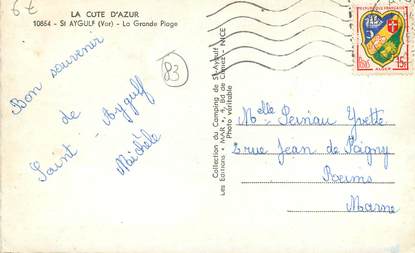 6€
LA COTE D'AZUR
10854 - St AYGULF (Var) - La Grande Plage
83
Bon souvenir
de
Saint-Aygulf
Michèle
Collection du Camping de St-Aygulf
Les Editions "MAR", Bd de Cimiez - NICE
Photo véritable
REPUBLIQUE FRANÇAISE
POSTES
15F
ALGER
Melle Yvette
2 rue Jean de
Reims
Marne